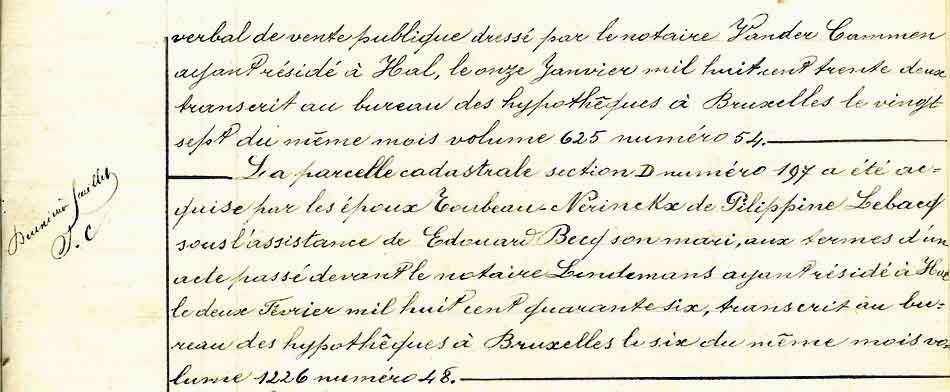 verbal de vente publique dressé par le notaire Vander Cammen
ayant résidé à Hal, le onze Janvier mil huit cent trente deux
transcrit au bureau des hypothêques à Bruxelles le vingt
sept du même mois volume 625 numéro 54.
La parcelle cadastrale section D numéro 197 a été ac-
quise par les époux Toubeau-Nerinckx de Pilippine Lebacq
sous l'assistance de Edouard Becq son mari, aux termes d'un
acte passé devant le notaire Lindemans ayant résidé à Hal
le deux Février mil huit cent quarante six, transcrit au bu-
reau des hypothêques à Bruxelles le six du même mois vo-
lume 1226 numéro 48.
Deuxième feuillet